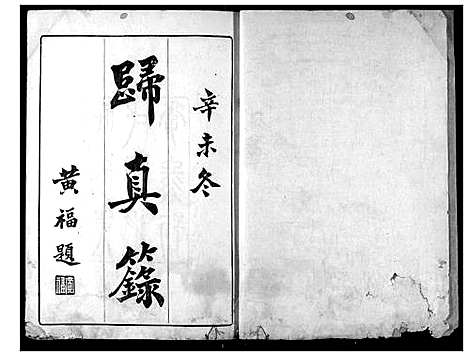 辛未冬
歸真籙
黃福題